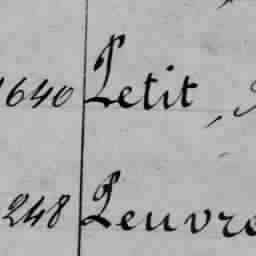 1640 Petit,
248 Peuvre